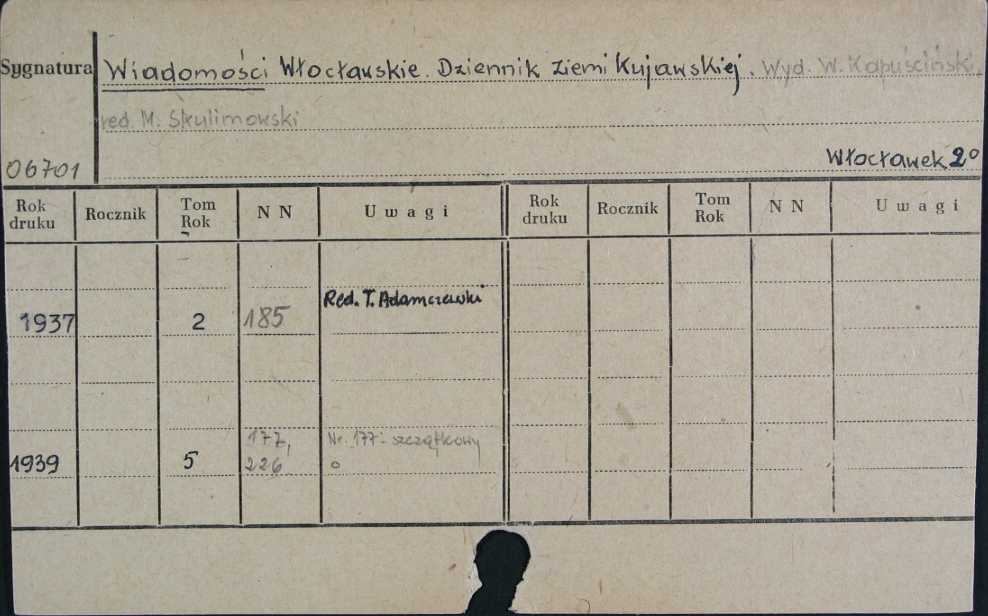 Sygnatura Wiadomości Włocławskie. Dziennik Ziemi Kujawskiej. Wyd. W. Kapuściński,
red. M. Skulimowski
06701 Włocławek 2°
Rok druku Rocznik Tom Rok N N Uwagi Rok druku Rocznik Tom Rok N N Uwagi
1937 2 185 Red. T. Adamczewski
1939 5 177, 226 Nr. 177 - szczątkowy